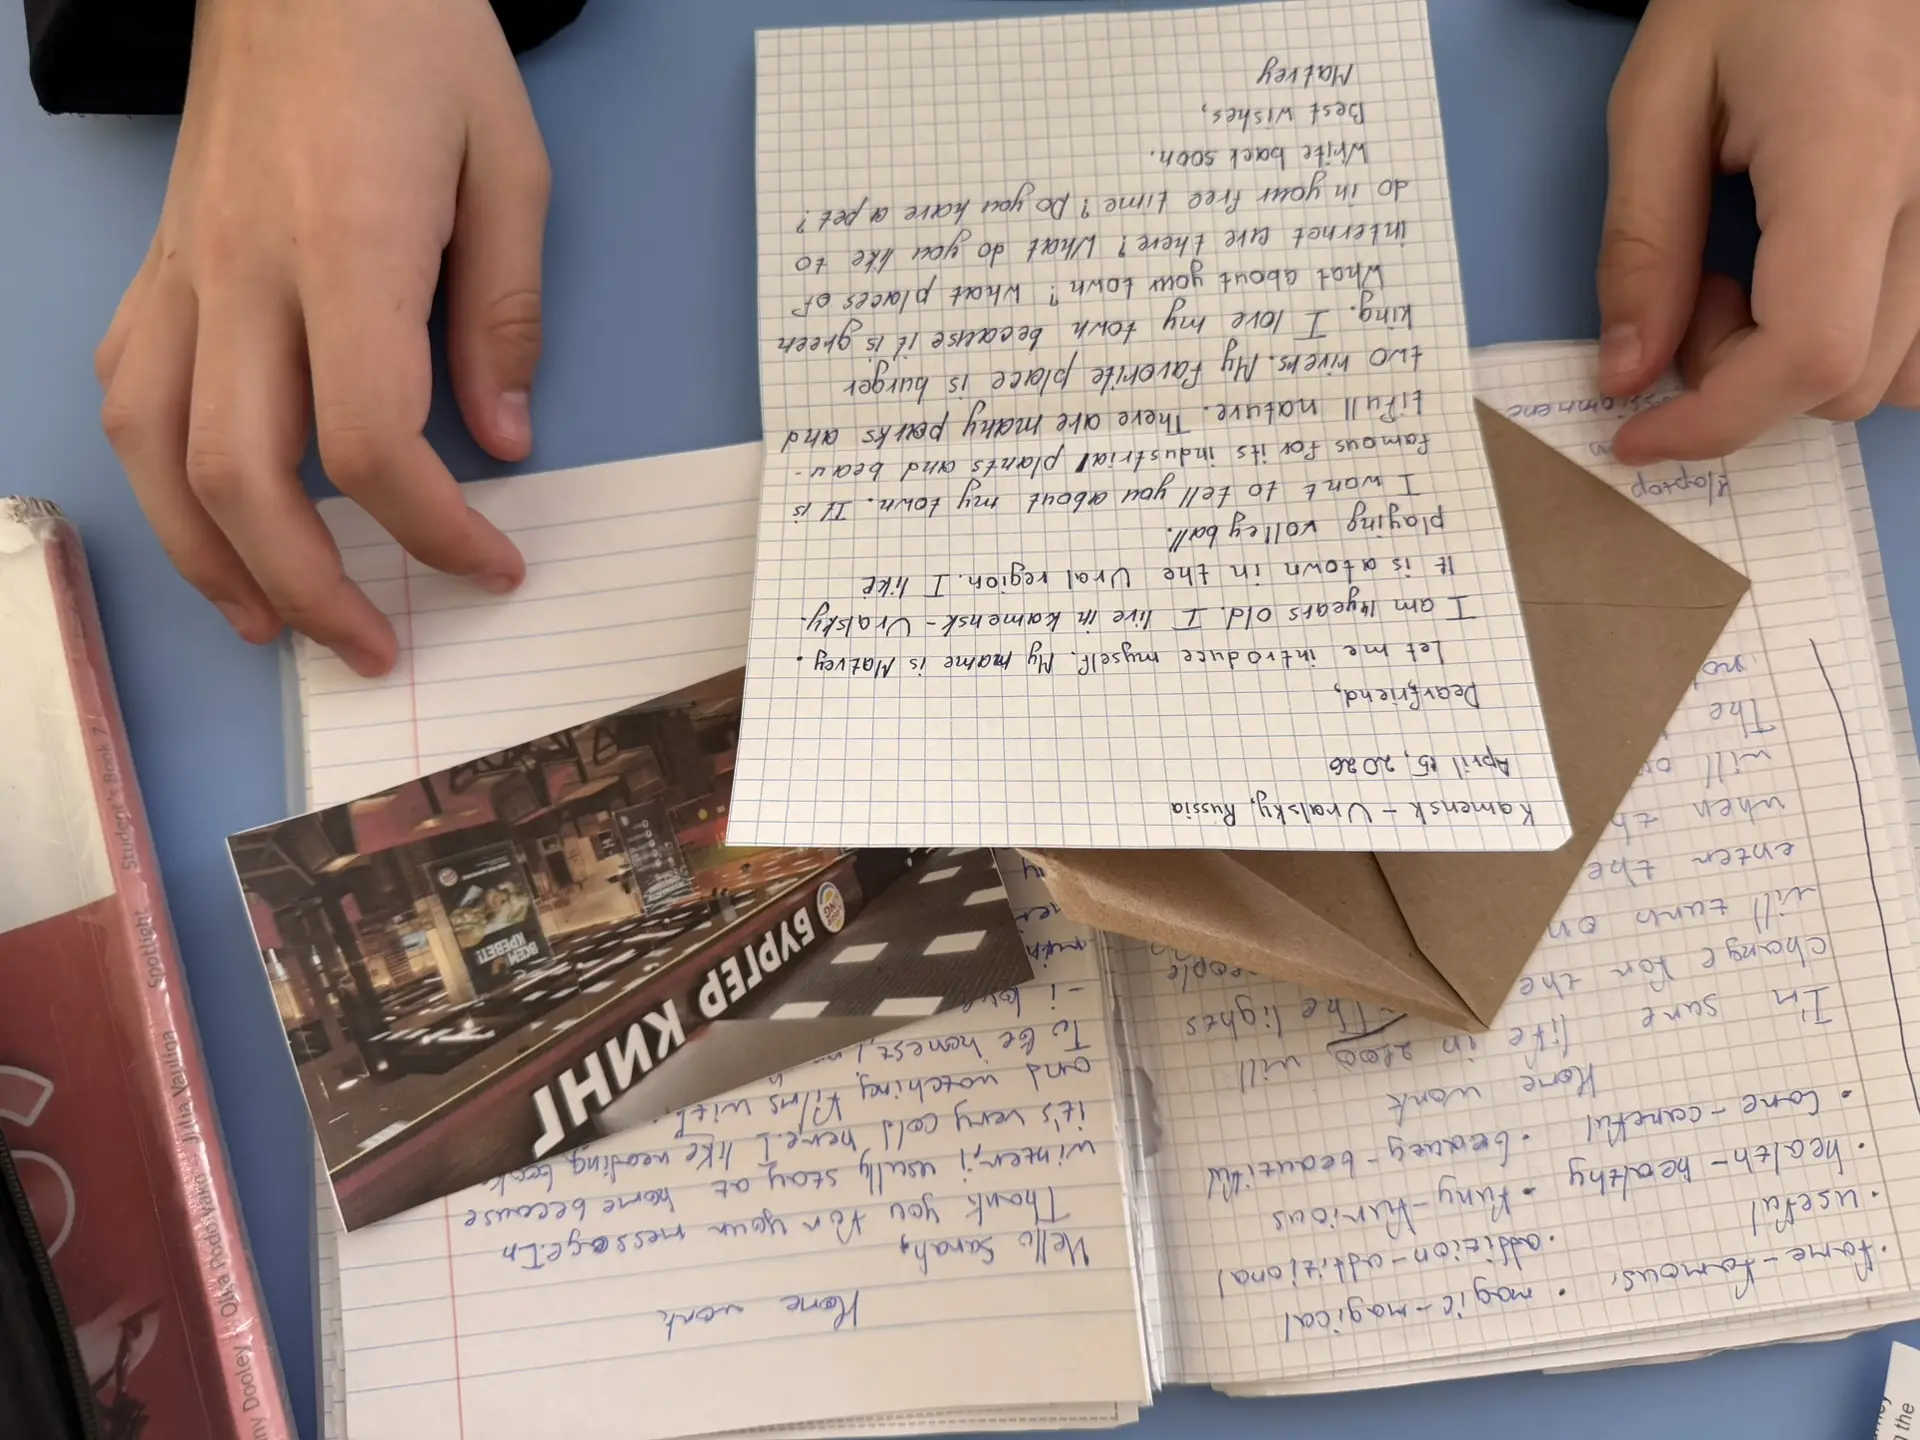 Kamensk - Uralsky, Russia
April 15, 2026
Dear friend,
Let me introduce myself. My name is Matvey.
I am 14 years old. I live in Kamensk - Uralsky.
It is a town in the Ural region. I like
playing volleyball.
I want to tell you about my town. It is
famous for its industrial plants and beau-
tifull nature. There are many parks and
two rivers. My favorite place is burger
king. I love my town because it is green
What about your town? What places of
internet are there? What do you like to
do in your free time? Do you have a pet?
Write back soon.
Best wishes,
Matvey
БУРГЕР КИНГ
ВСЕМ
КРЕВЕТ!
Home work
Hello Sarah,
Thank you for your message. In
winter, i usully stay at home because
it's very cold here. I like reading
and watching films with
To be honest,
fame - famous,
useful
health - healthy
care - careful
magic - magical
addition - additional
funy - furious
beauty - beautiful
Home work
life in 2100 will
The lights
I'm sure
change for the
will turn on
enter the
when th
will
The
laptop
Spotlight Student's Book 7
Dooley Olga Podolyako Julia Vaulina
the